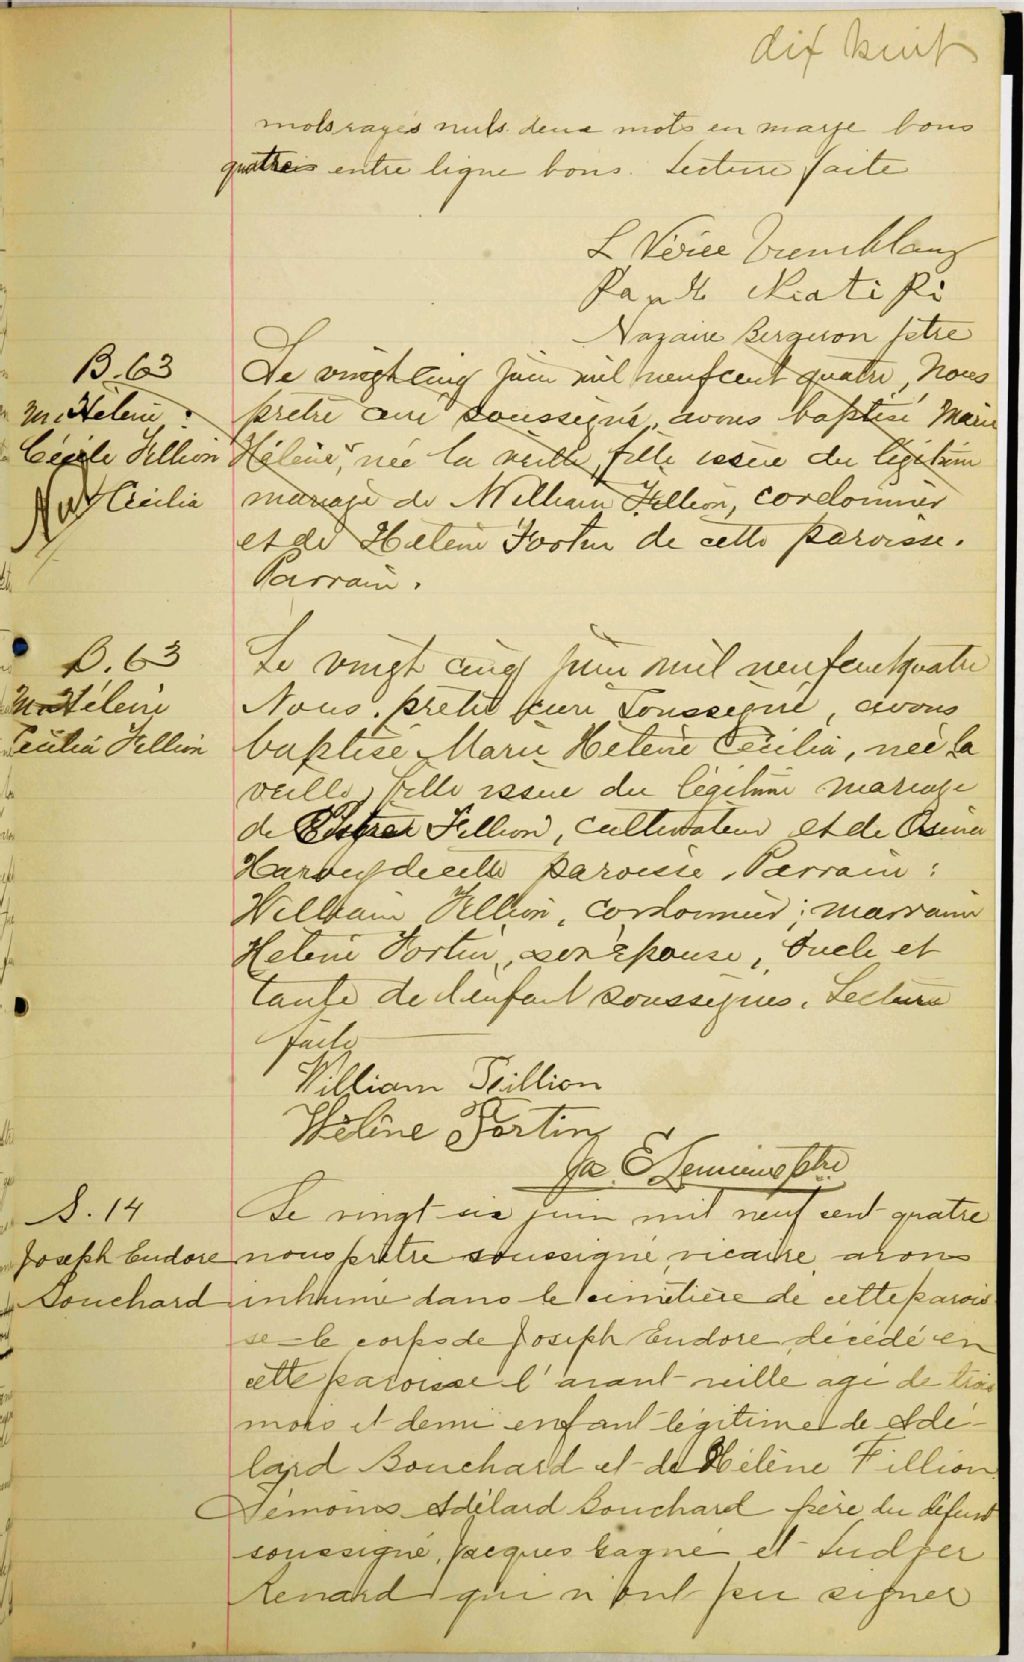 dix huit
mots rayés nuls deux mots en marge bons
entre ligne bons. Lecture faite
L Tremblay
Nazaire Bergeron ptre
B. 63
M. Hélène
Cécile Fillion
Nul
Cécilia
Le vingt cinq juin mil neuf cent quatre, Nous
prêtre curé soussigné, avons baptisé Marie
Hélène, née la veille, fille issue du légitime
mariage de William Fillion, cordonnier
et de Hélène Fortin de cette paroisse.
Parrain.
B. 63
M. Hélène
Cécilia Fillion
Le vingt cinq juin mil neuf cent quatre
Nous, prêtre curé soussigné, avons
baptisé Marie Hélène Cécilia, née la
veille, fille issue du légitime mariage
de Fillion, cultivateur et de
Harvey de cette paroisse. Parrain:
William Fillion, cordonnier; marraine
Hélène Fortin, son épouse, oncle et
tante de l'enfant soussignés. Lecture
faite
William Fillion
Hélène Fortin
Jos. E Lemieux ptre
S. 14
Joseph Eudore
Bouchard
Le vingt-six juin mil neuf cent quatre
nous prêtre soussigné, vicaire, avons
inhumé dans le cimetière de cette parois-
se le corps de Joseph Eudore décédé en
cette paroisse l'avant-veille agé de trois
mois et demi enfant légitime de Adé-
lard Bouchard et de Hélène Fillion.
Témoins Adélard Bouchard père du défunt
soussigné, Jacques Gagné et Ludger
Renard qui n'ont pu signer